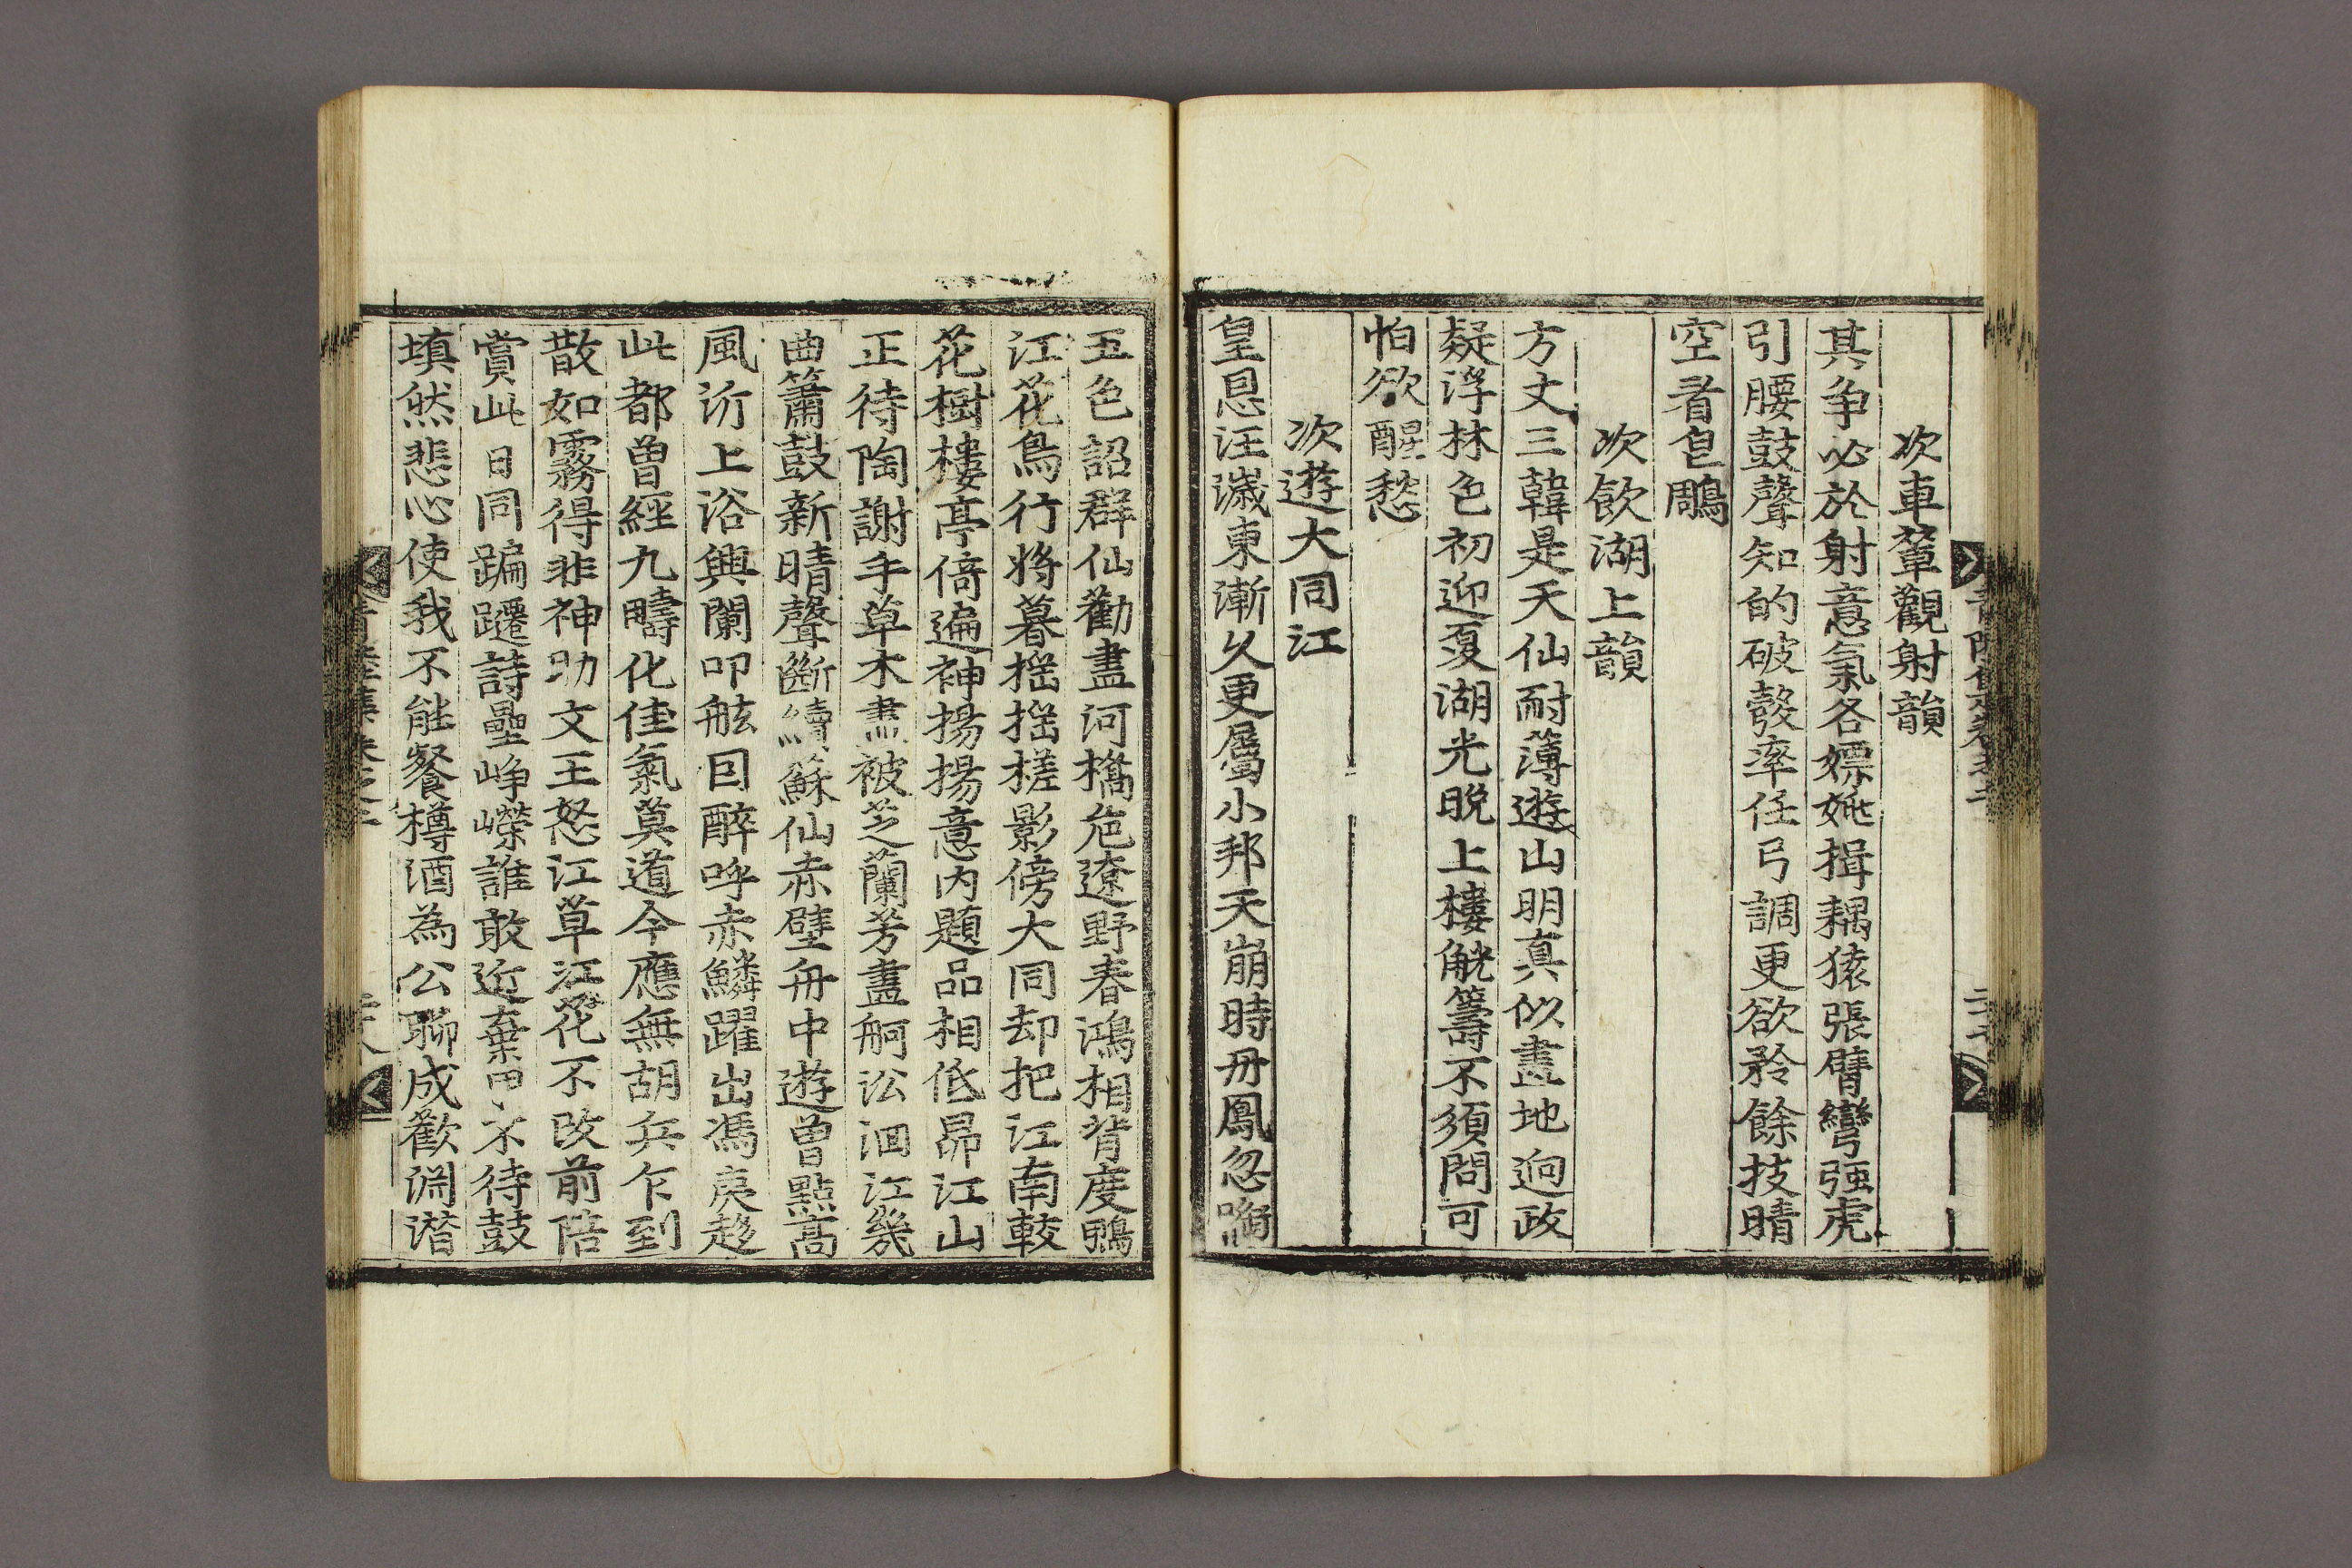 次車輦觀射韻
其争必於射意氣各嫖姚揖耦猿張臂彎强虎
引腰鼓聲知的破彀率任弓調更欲矜餘技晴
空看皂鵰
次飲湖上韻
方丈三韓是天仙耐薄遊山明真似畫地逈政
疑浮林色初迎夏湖光晚上樓觥籌不須問可
怕欲醒愁
次遊大同江
皇恩汪濊東漸久更屬小邦天崩時丹鳳忽㗸
五色詔群仙勸盡河橋卮遼野春鴻相背度鴨
江花鳥行將暮摇摇槎影傍大同却把江南較
花樹樓亭倚遍神揚揚意内題品相低昂江山
正待陶謝手草木盡被芝蘭芳畫舸㳂洄江幾
曲簫鼓新晴聲斷續蘇仙赤壁舟中遊曾點高
風沂上浴興闌叩舷因醉呼赤鱗躍出馮夷趍
此都曾經九疇化佳氣莫道今應無胡兵乍到
散如霧得非神助文王怒江草江花不改前陪
賞此日同蹁躚詩壘崢嶸誰敢近棄甲 不待鼓
填然悲心使我不能餐樽酒為公聊成歡淵谐